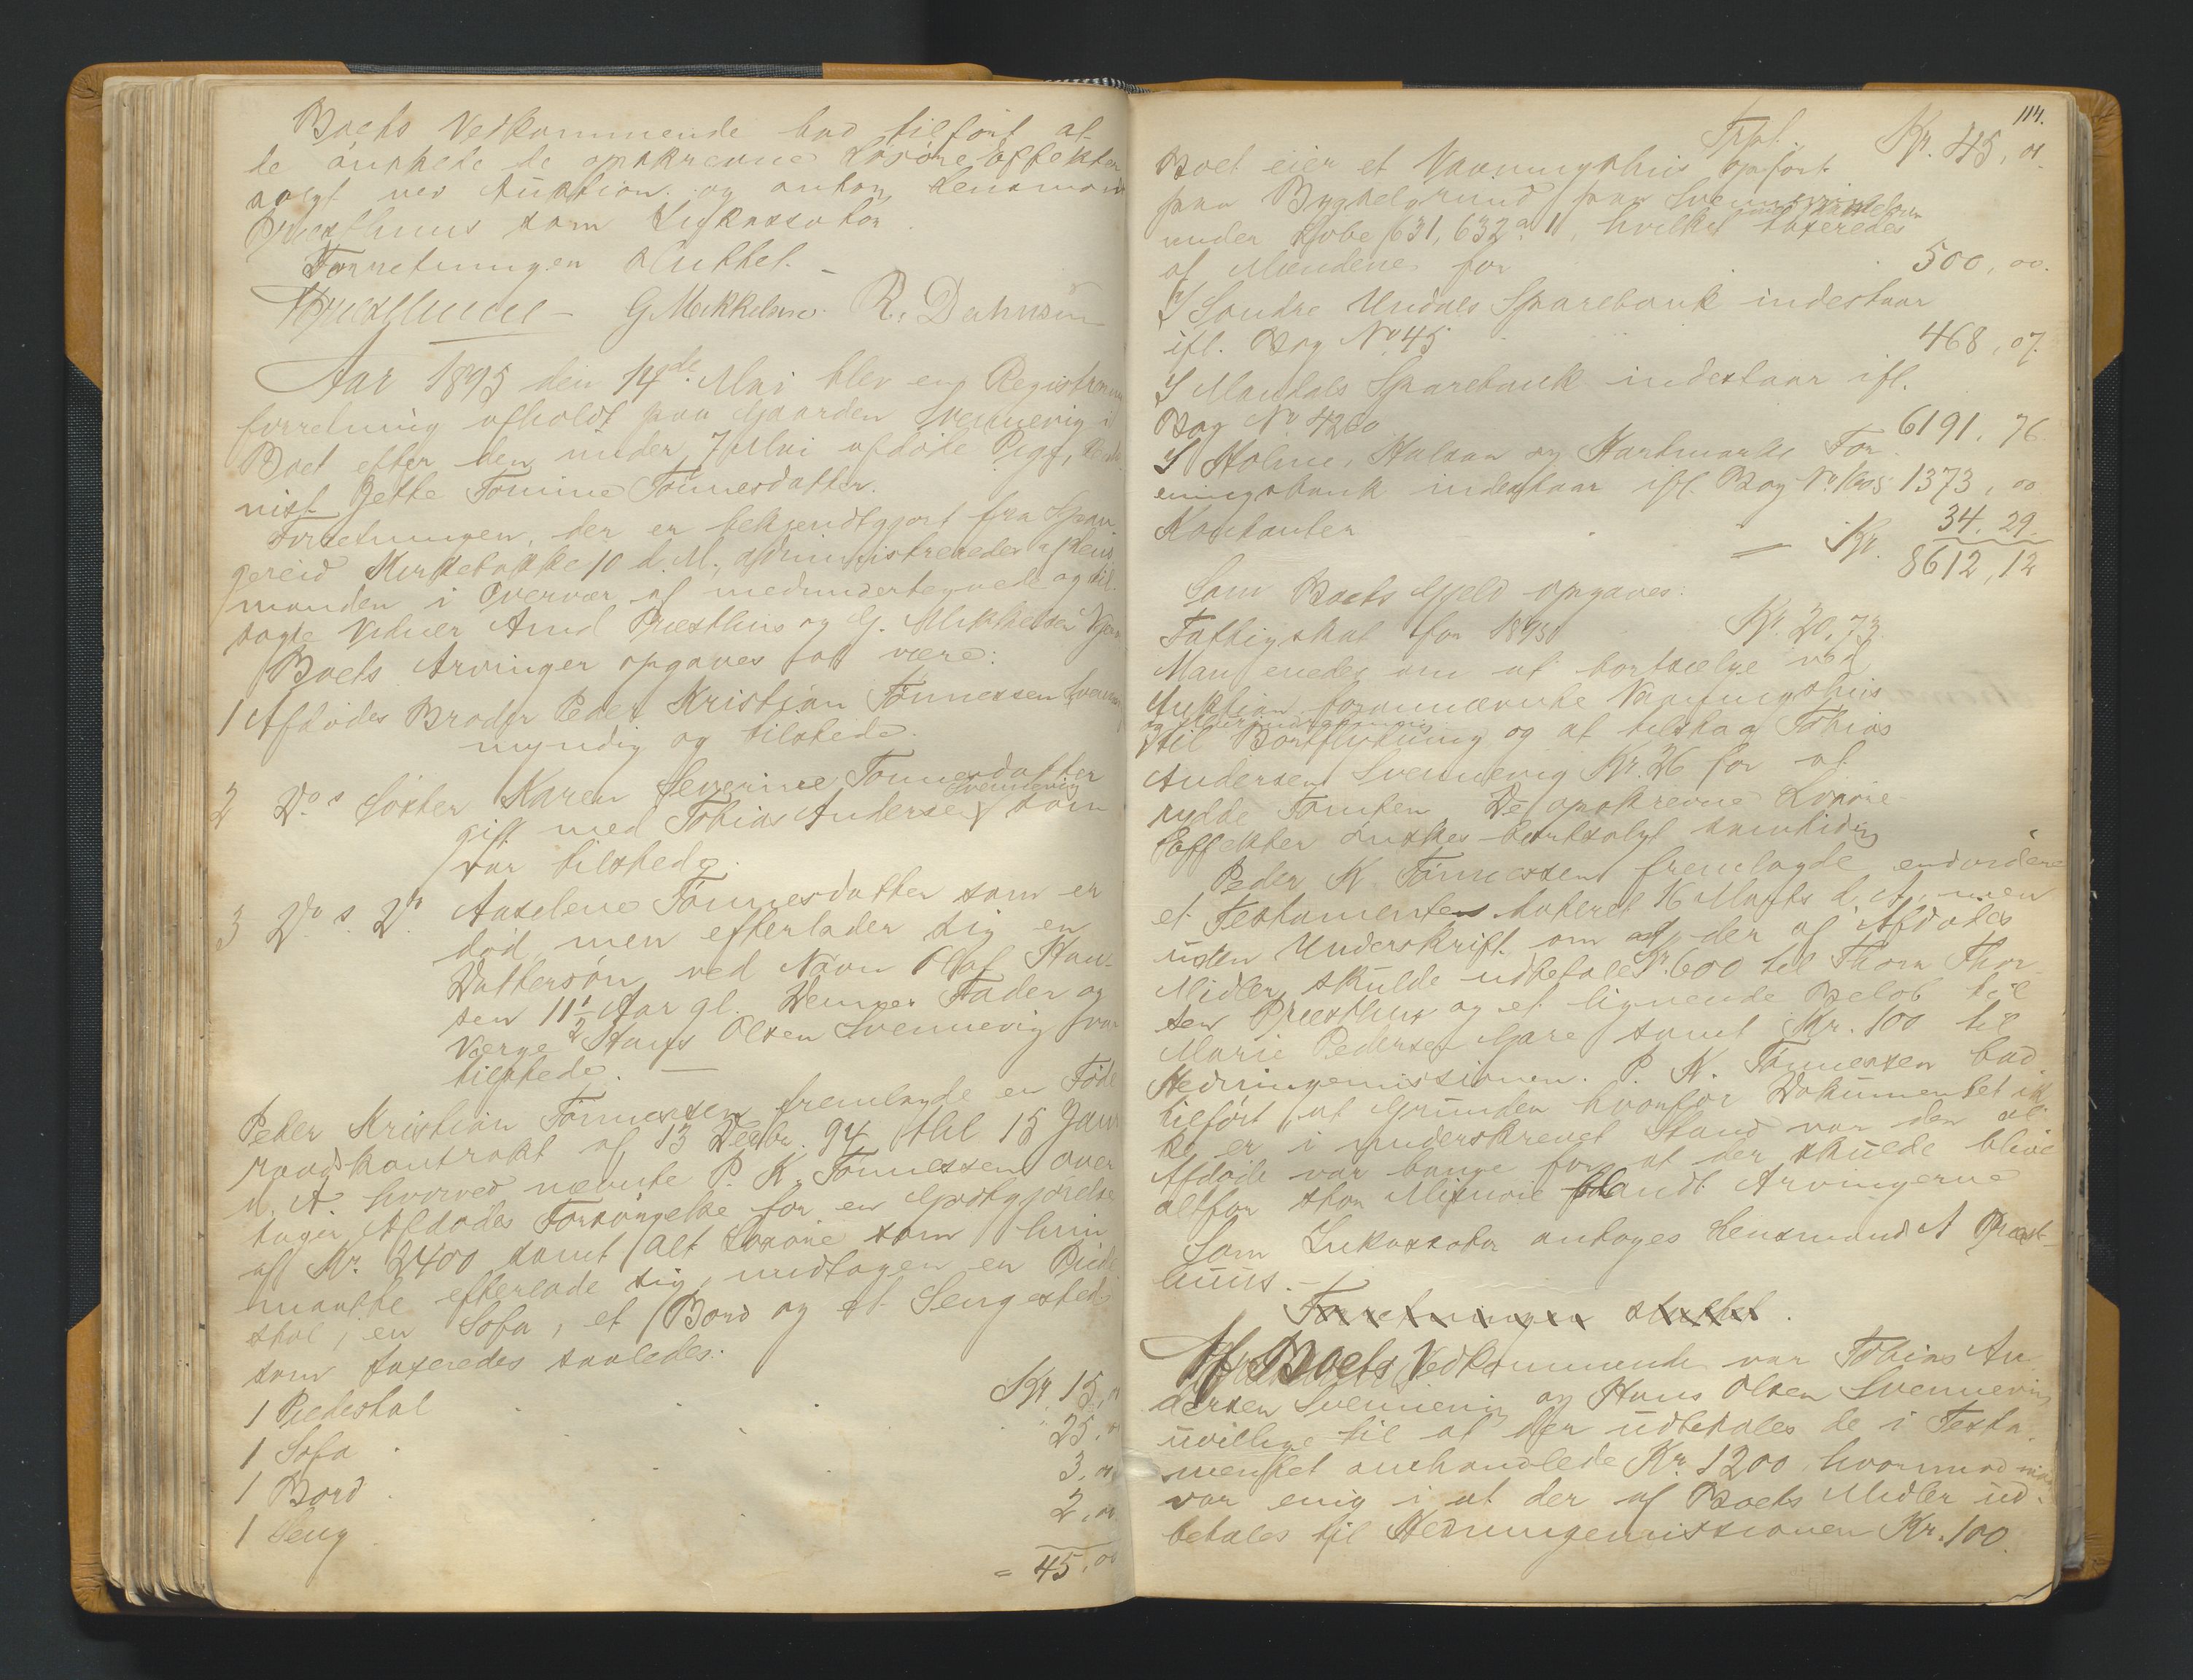 Boets Vedkommende bad tilført at
de ønskede de opskrevne Løsøreeffekter
solgt ved Auktion og antog Lensmand
Præsthuus som Inkassator.
Forretningen sluttet. –
Præsthuus – G Mikkelsen. R.
Aar 1895 den 14de Mai blev en Registrerings
forretning afholdt paa Gaarden Svennevig i
Boet efter den under 7 Mai afdøde Pige,
nist Jette Tomine Tønnesdatter.
Forretningen, der er bekjendtgjort fra Span-
gereid Kirkebakke 10 d. M., administreredes af Lens
manden i Overvær af medundertegnede og til
sagte Vidner Arnd Præsthus og G. Mikkelsen
Boets Arvinger opgaves at være:
1 Afdødes Broder Peder Kristian Tønnessen Svennevig
myndig og tilstede.
2 Do s Søster Karen Severine Tønnesdatter
gift med Tobias Andersen Svennevig som
var tilstede.
3 Do s. Do Aaselene Tønnesdatter som er
død, men efterlader sig en
Dattersøn ved Navn Olaf Han-
sen 11 1/2 Aar gl. Dennes Fader og
Værge Hans Olsen Svennevig var
tilstede. –
Peder Kristian Tønnessen fremlagde en Føde
raadskontrakt af 13 Decbr. 94, thl 15 Janr
d. A. hvorved nævnte P. K. Tønnessen over
tager Afdødes Forsørgelse for en Godtgjørelse
af Kr. 2400 samt alt Løsøre som hun
maatte efterlade sig, undtagen en Piede
stal, en Sofa, et Bord og et Sengested
som taxeredes saaledes:
1 Piedestal . . . Kr. 15,00
1 Sofa . . . " 25,00
1 Bord . . 3,00
1 Seng . . 2,00
= 45,00
114.
Trpt. Kr. 45,00.
Boet eier et Vaaningshus opført
paa Bygselgrund paa Svennevig
under Løbe 631, 632 a 1, hvilket taxeredes
af Mændene for . 500,00.
I Søndre Undals Sparebank indestaar
ifl. Bog No 45 . 468,07.
I Mandals Sparebank indestaar ifl.
Bog No 4260 6191,76
I Holme, Halsaa og Hartmarks For-
eningsbank indestaar ifl. Bog No. 1373,00
Kontanter . 34,29.
– Kr. 8612,12
Som Boets Gjeld opgaves:
Fattigskat for 1895 Kr. 20,73.
Man enedes om at bortsælge ved
Auktion fornævnte Vaaningshus
til Bortflytning og at tilstaa Tobias
Andersen Svennevig Kr. 26 for at
rydde Tomten. De opskrevne Løsøre-
effekter ønskes bortsolgt samtidig
Peder K. Tønnessen fremlagde endvidere
et Testamente dateret 16 Marts d. A. men
uden Underskrift om at der af Afdødes
Midler skulde udbetales Kr. 600 til Thora Thor
sen Præsthus og et lignende Beløb til
Marie Pedersen Gare samt Kr. 100 til
Hedningemissionen. P. K. Tønnessen bad
tilført, at Grunden hvorfor Dokumentet ik
ke er i underskrevet Stand var den at
Afdøde var bange for at der skulde blive
altfor stor Misnøie blandt Arvingerne
Som Inkassator antoges Lensmand A Præst-
huus. –
Forretningen sluttet.
Af Boets Vedkommende var Tobias An-
dersen Svennevig og Hans Olsen Svennevig
uvillige til at der udbetales de i Testa-
mentet omhandlede Kr. 1200, hvormod man
var enig i at der af Boets Midler ud-
betales til Hedningemissionen Kr. 100.